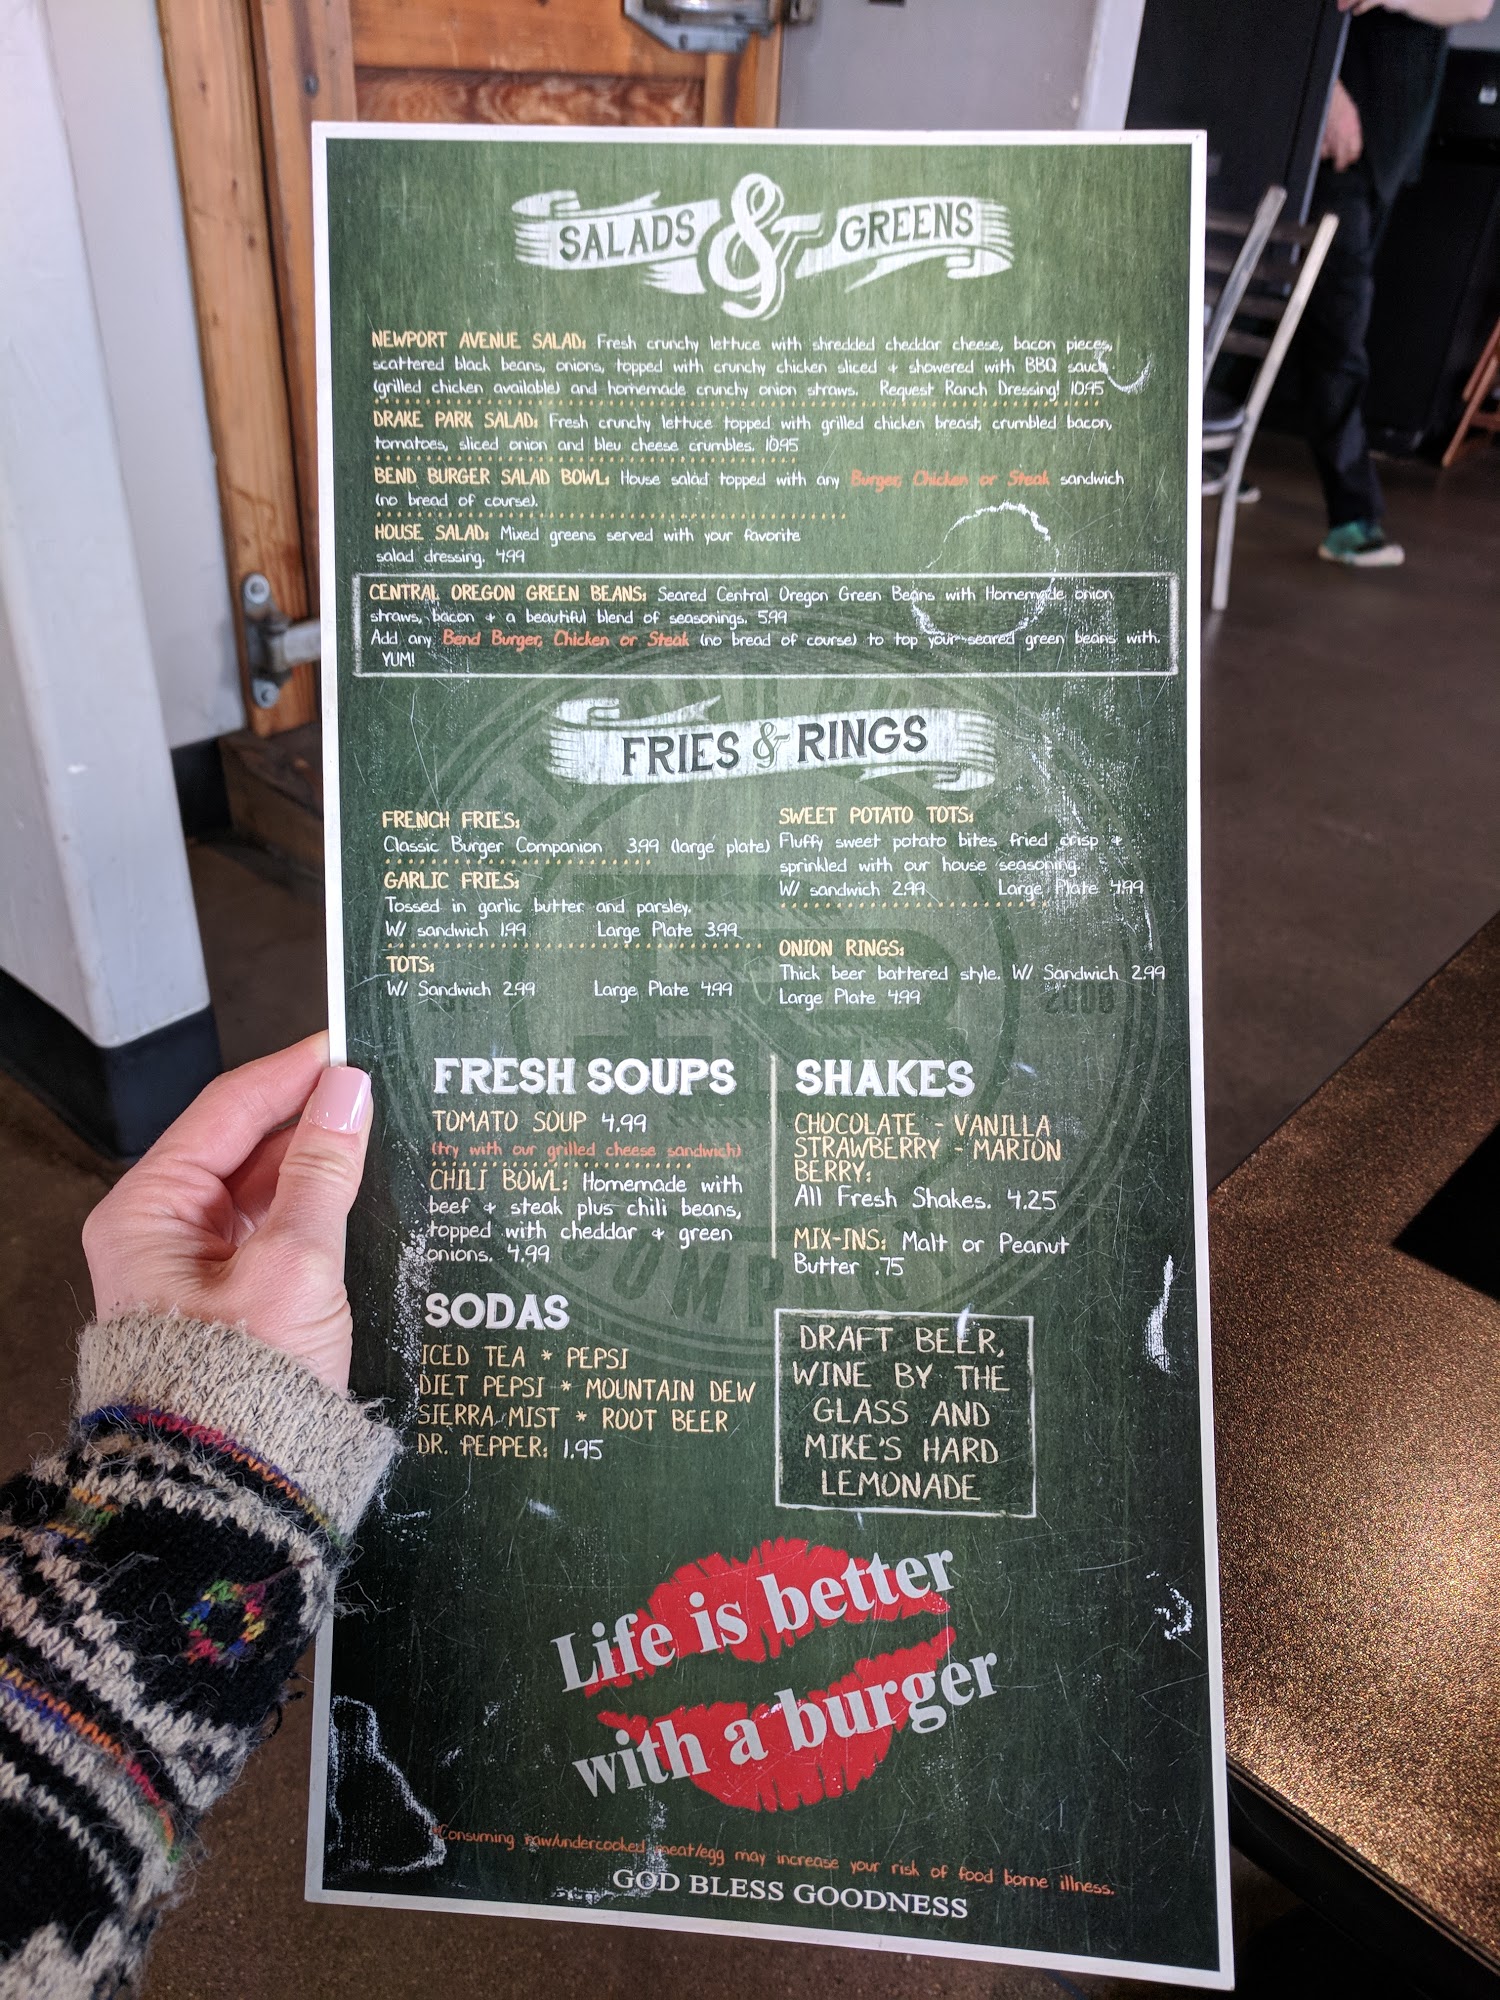 SALADS & GREENS
NEWPORT AVENUE SALAD: Fresh crunchy lettuce with shredded cheddar cheese, bacon pieces,
scattered black beans, onions, topped with crunchy chicken sliced + showered with BBQ sauce
(grilled chicken available) and homemade crunchy onion straws. Request Ranch Dressing! 10.95
DRAKE PARK SALAD: Fresh crunchy lettuce topped with grilled chicken breast, crumbled bacon,
tomatoes, sliced onion and bleu cheese crumbles. 10.95
BEND BURGER SALAD BOWL: House salad topped with any Burger, Chicken or Steak sandwich
(no bread of course).
HOUSE SALAD: Mixed greens served with your favorite
salad dressing. 4.99
CENTRAL OREGON GREEN BEANS: Seared Central Oregon Green Beans with Homemade onion
straws, bacon + a beautiful blend of seasonings. 5.99
Add any Bend Burger, Chicken or Steak (no bread of course) to top your seared green beans with.
YUM!
FRIES & RINGS
FRENCH FRIES:
Classic Burger Companion 3.99 (large plate)
GARLIC FRIES:
Tossed in garlic butter and parsley.
W/ sandwich 1.99 Large Plate 3.99
TOTS:
W/ Sandwich 2.99 Large Plate 4.99
SWEET POTATO TOTS:
Fluffy sweet potato bites fried crisp +
sprinkled with our house seasoning.
W/ sandwich 2.99 Large Plate 4.99
ONION RINGS:
Thick beer battered style. W/ Sandwich 2.99
Large Plate 4.99
2008
COMPANY
FRESH SOUPS
TOMATO SOUP 4.99
(try with our grilled cheese sandwich)
CHILI BOWL: Homemade with
beef + steak plus chili beans,
topped with cheddar + green
onions. 4.99
SHAKES
CHOCOLATE - VANILLA
STRAWBERRY - MARION
BERRY:
All Fresh Shakes. 4.25
MIX-INS: Malt or Peanut
Butter .75
SODAS
ICED TEA * PEPSI
DIET PEPSI * MOUNTAIN DEW
SIERRA MIST * ROOT BEER
DR. PEPPER: 1.95
DRAFT BEER,
WINE BY THE
GLASS AND
MIKE'S HARD
LEMONADE
Life is better
with a burger
*Consuming raw/undercooked meat/egg may increase your risk of food borne illness.
GOD BLESS GOODNESS